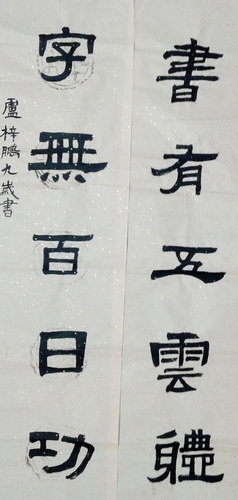 書有五雲體
字無百日功
盧梓鵬九歲書